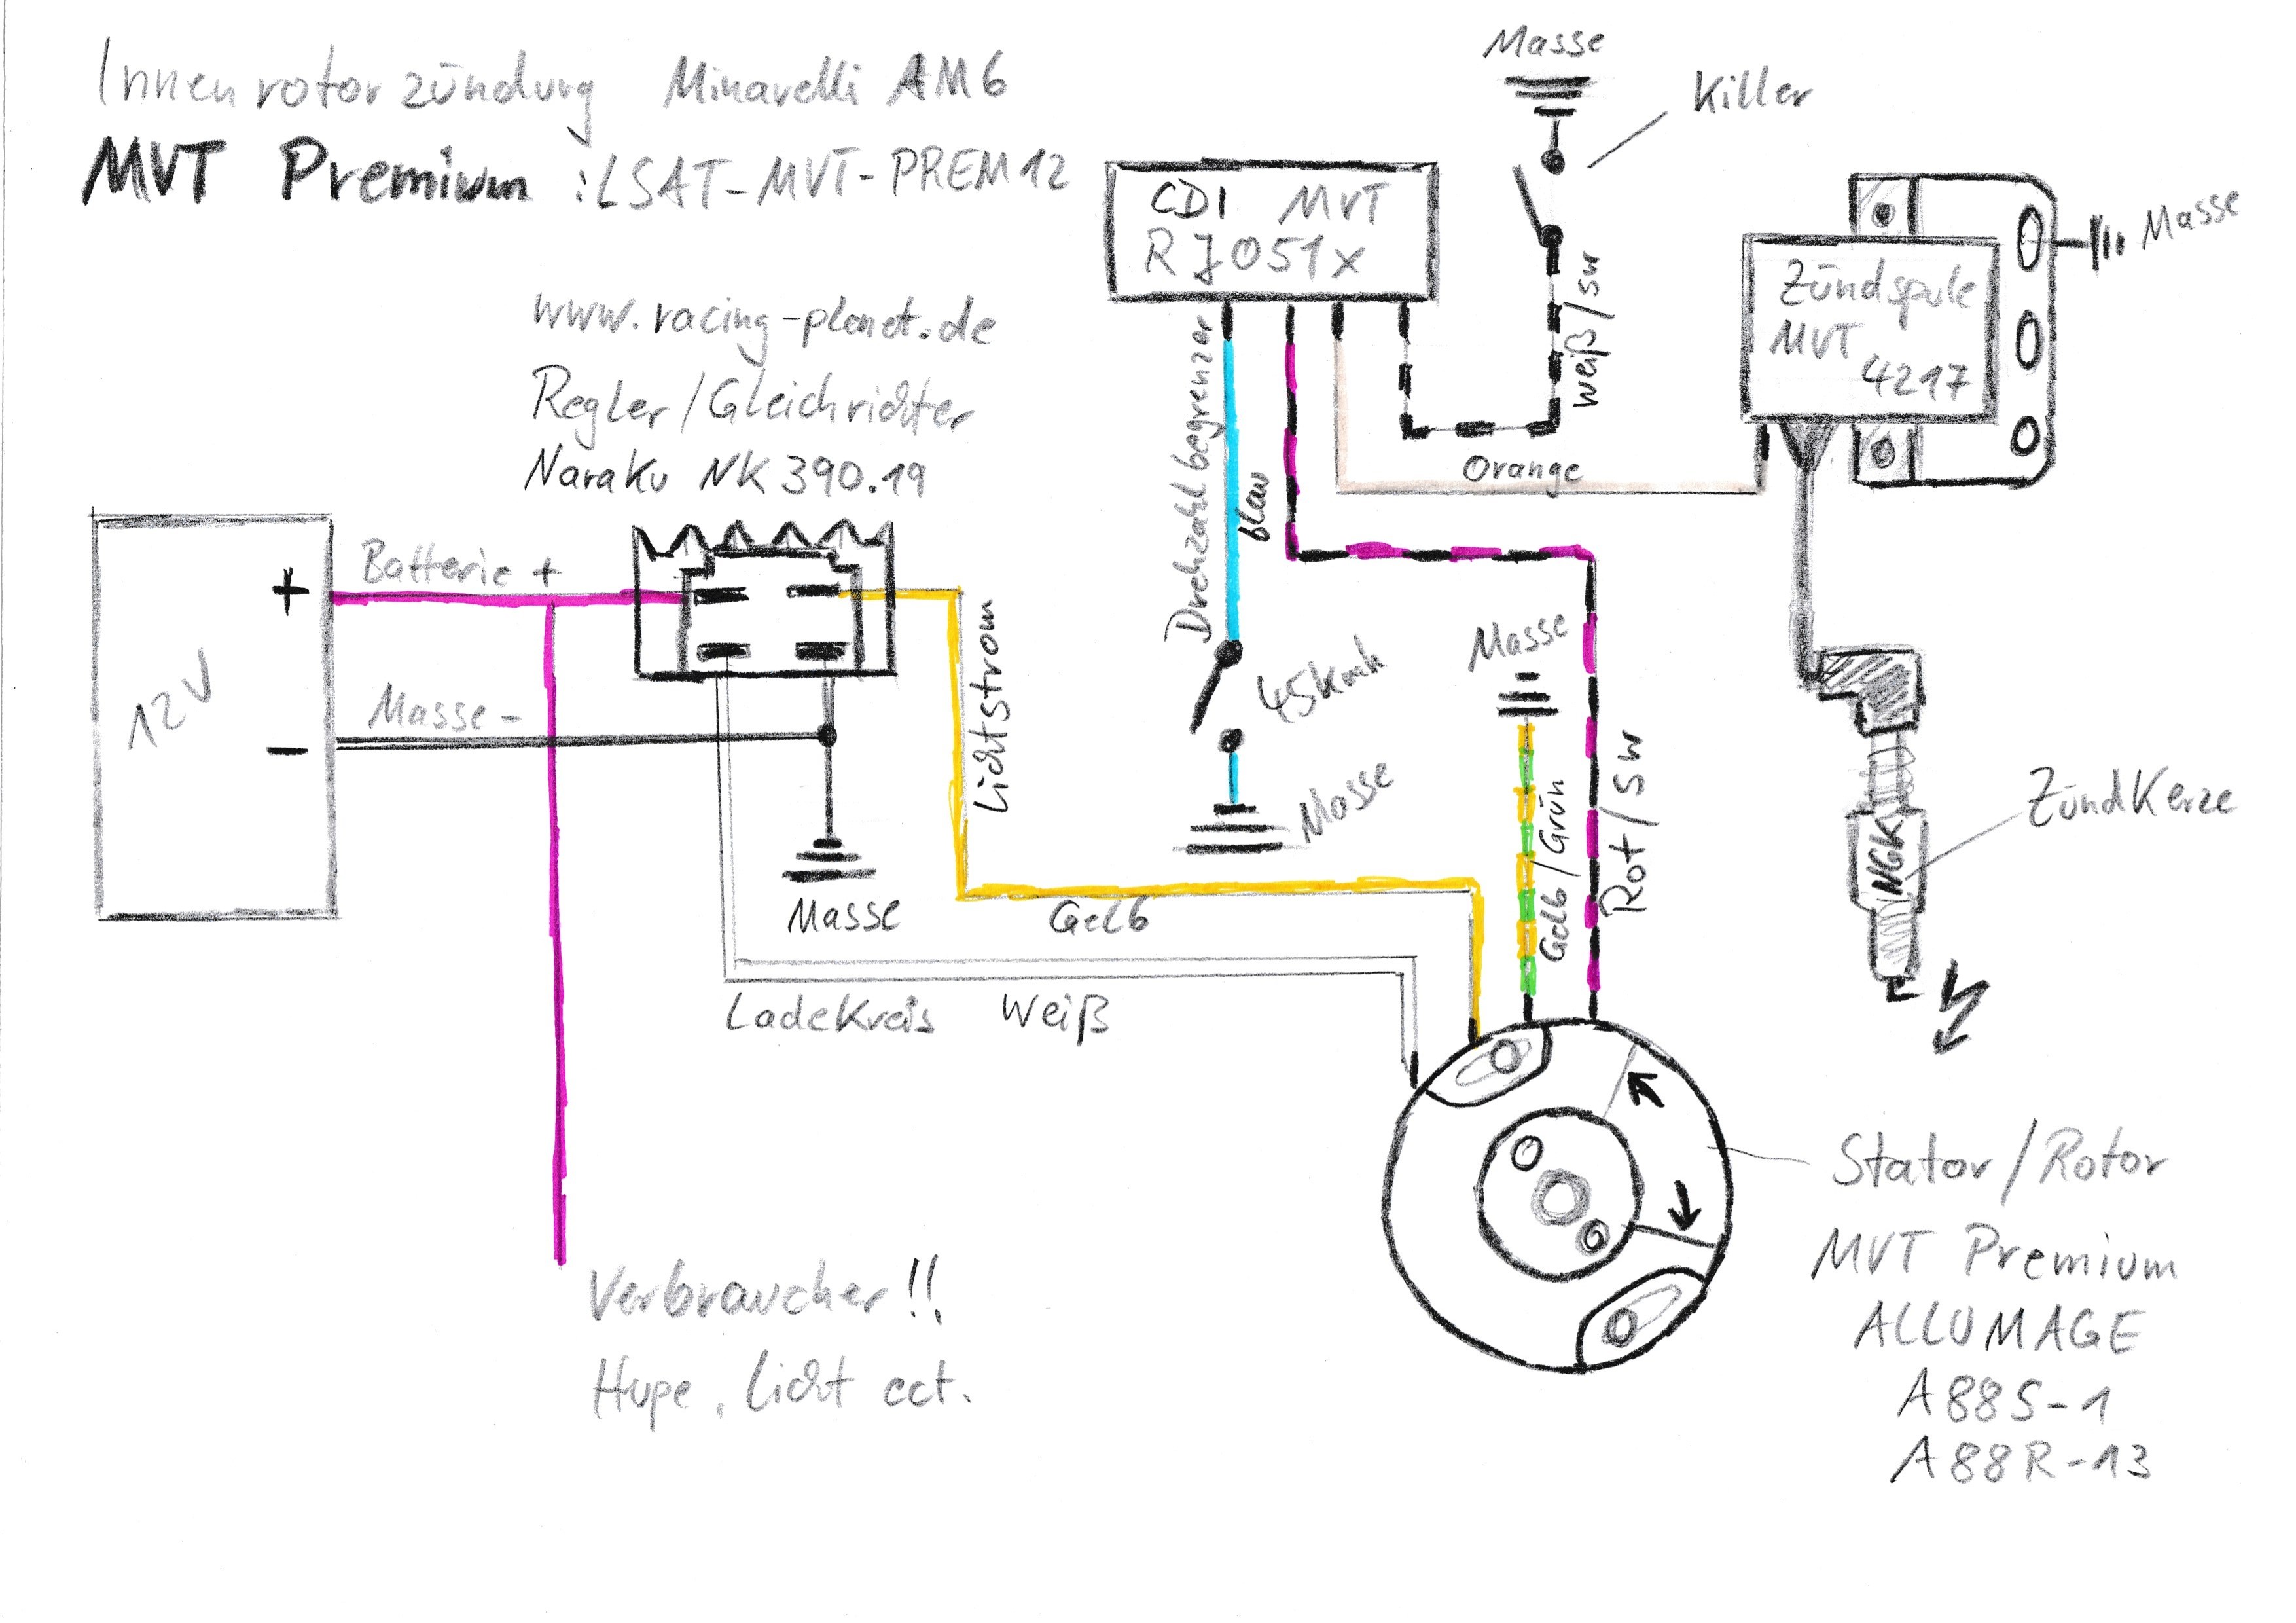 Innenrotorzündung Minarelli AM6
MVT Premium :LSAT-MVT-PREM12
www.racing-planet.de
Regler/Gleichrichter
Naraku NK 390.19
12V
+
-
Batterie +
Masse -
Masse
Lichtstrom
Gelb
Ladekreis Weiß
Verbraucher!!
Hupe, Licht ect.
CDI MVT
RJ051x
Drehzahlbegrenzer
blau
45kmh
Masse
Masse
Killer
weiß/sw
Orange
Masse
Gelb/Grün
Rot/SW
Zündspule
MVT
4217
Masse
Zündkerze
NGK
Stator/Rotor
MVT Premium
ALLUMAGE
A88S-1
A88R-13